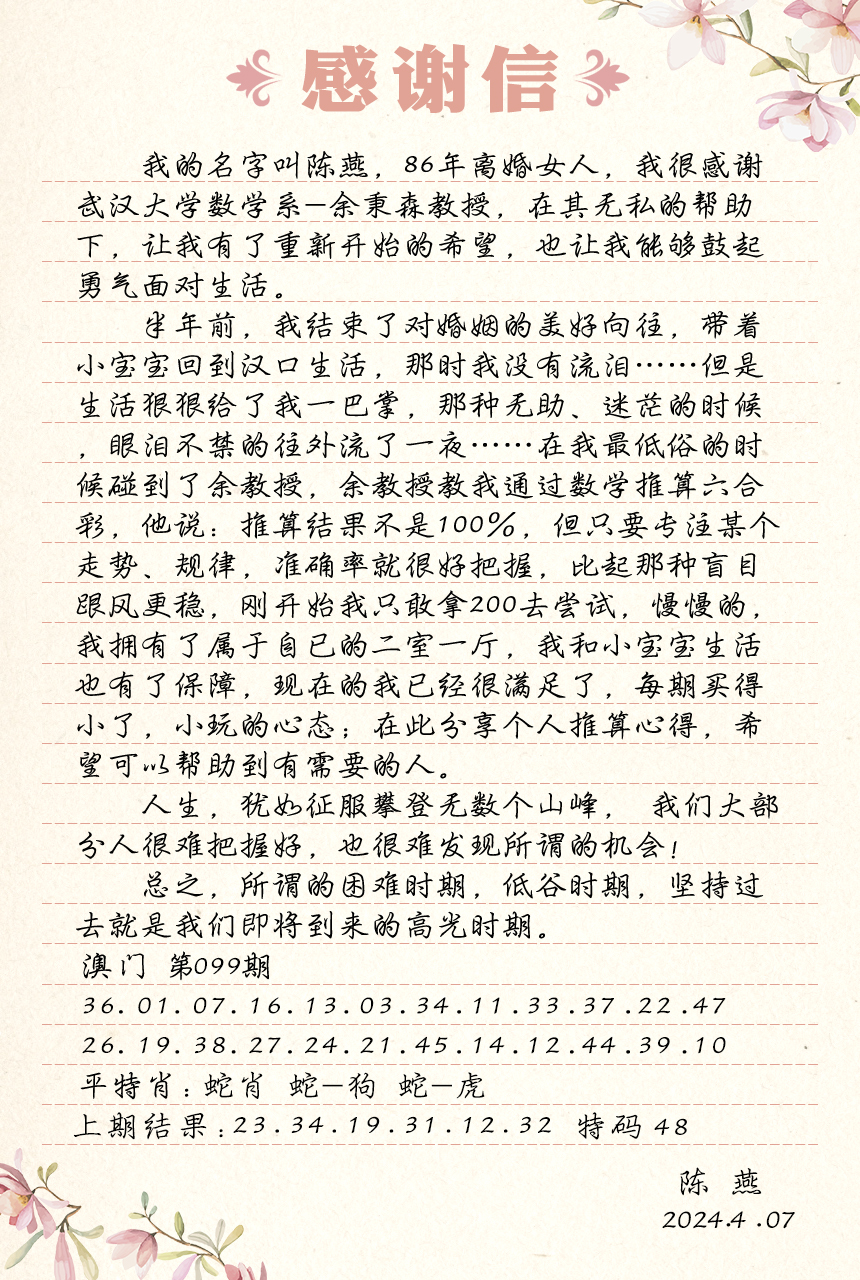 感谢信
我的名字叫陈燕，86年离婚女人，我很感谢
武汉大学数学系—余秉森教授，在其无私的帮助
下，让我有了重新开始的希望，也让我能够鼓起
勇气面对生活。
半年前，我结束了对婚姻的美好向往，带着
小宝宝回到汉口生活，那时我没有流泪……但是
生活狠狠给了我一巴掌，那种无助、迷茫的时候
，眼泪不禁的往外流了一夜……在我最低俗的时
候碰到了余教授，余教授教我通过数学推算六合
彩，他说：推算结果不是100%，但只要专注某个
走势、规律，准确率就很好把握，比起那种盲目
跟风更稳，刚开始我只敢拿200去尝试，慢慢的，
我拥有了属于自已的二室一厅，我和小宝宝生活
也有了保障，现在的我已经很满足了，每期买得
小了，小玩的心态；在此分享个人推算心得，希
望可以帮助到有需要的人。
人生，犹如征服攀登无数个山峰， 我们大部
分人很难把握好，也很难发现所谓的机会！
总之，所谓的困难时期，低谷时期，坚持过
去就是我们即将到来的高光时期。
澳门 第099期
36.01.07.16.13.03.34.11.33.37.22.47
26.19.38.27.24.21.45.14.12.44.39.10
平特肖：蛇肖 蛇—狗 蛇—虎
上期结果：23.34.19.31.12.32 特码48
陈 燕
2024.4.07